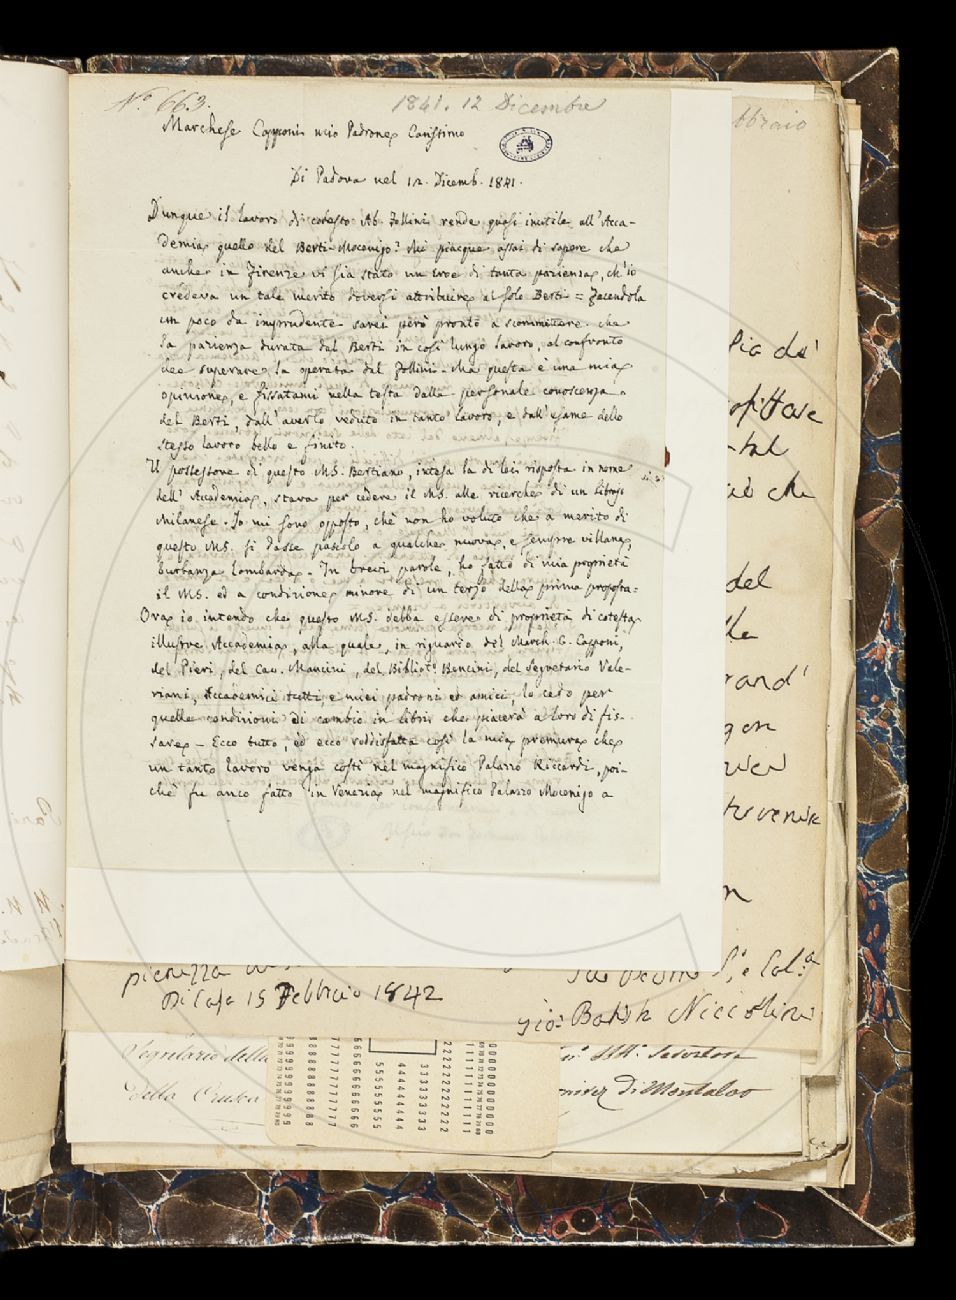 N.° 663.
1841. 12 Dicembre
Marchese Capponi mio Padrone Carissimo
Di Padova nel 12. Dicemb. 1841.
Dunque il lavoro di cotesto Ab. Follini rende quasi inutile all'Acca-
demia quello del Berti-Mocenigo? Mi piacque assai di sapere che
anche in Firenze vi sia stato un Eroe di tanta pazienza, ch'io
credeva un tale merito doversi attribuire al solo Berti = Facendola
un poco da imprudente sarei però pronto a scommettere che
la pazienza durata dal Berti in così lungo lavoro, al confronto
dee superare la operata dal Follini. Ma questa è una mia
opinione, e fissatami nella testa dalla personale conoscenza
del Berti, dall'averlo veduto in tanto lavoro, e dall'esame dello
stesso lavoro bello e finito.
Il possessore di questo MS. Bertiano, intesa la di lei risposta in nome
dell'Accademia, stava per cedere il MS. alle ricerche di un librajo
Milanese. Io mi sono opposto, chè non ho voluto che a merito di
questo MS. si dasse pascolo a qualche nuova, e sempre villana,
burbanza lombarda. In brevi parole, ho fatto di mia proprietà
il MS. ed a condizione minore di un terzo della prima proposta.
Ora io intendo che questo MS. debba essere di proprietà di cotesta
illustre Accademia, alla quale, in riguardo del March. G. Capponi,
del Pieri, del Cav. Mancini, del Bibliot.° Bencini, del Segretario Vale-
riani, Accademici tutti, e miei padroni ed amici, lo cedo per
quelle condizioni di cambio in libri che piacerà a loro di fis-
sare. – Ecco tutto, ed ecco soddisfatta così la mia premura che
un tanto lavoro venga costì nel magnifico Palazzo Riccardi, poi-
chè fu anco fatto in Venezia nel magnifico Palazzo Mocenigo a
Di Casa 15 Febbraio 1842
Gio: Batista Niccolini
Segretario della
Della Crusca